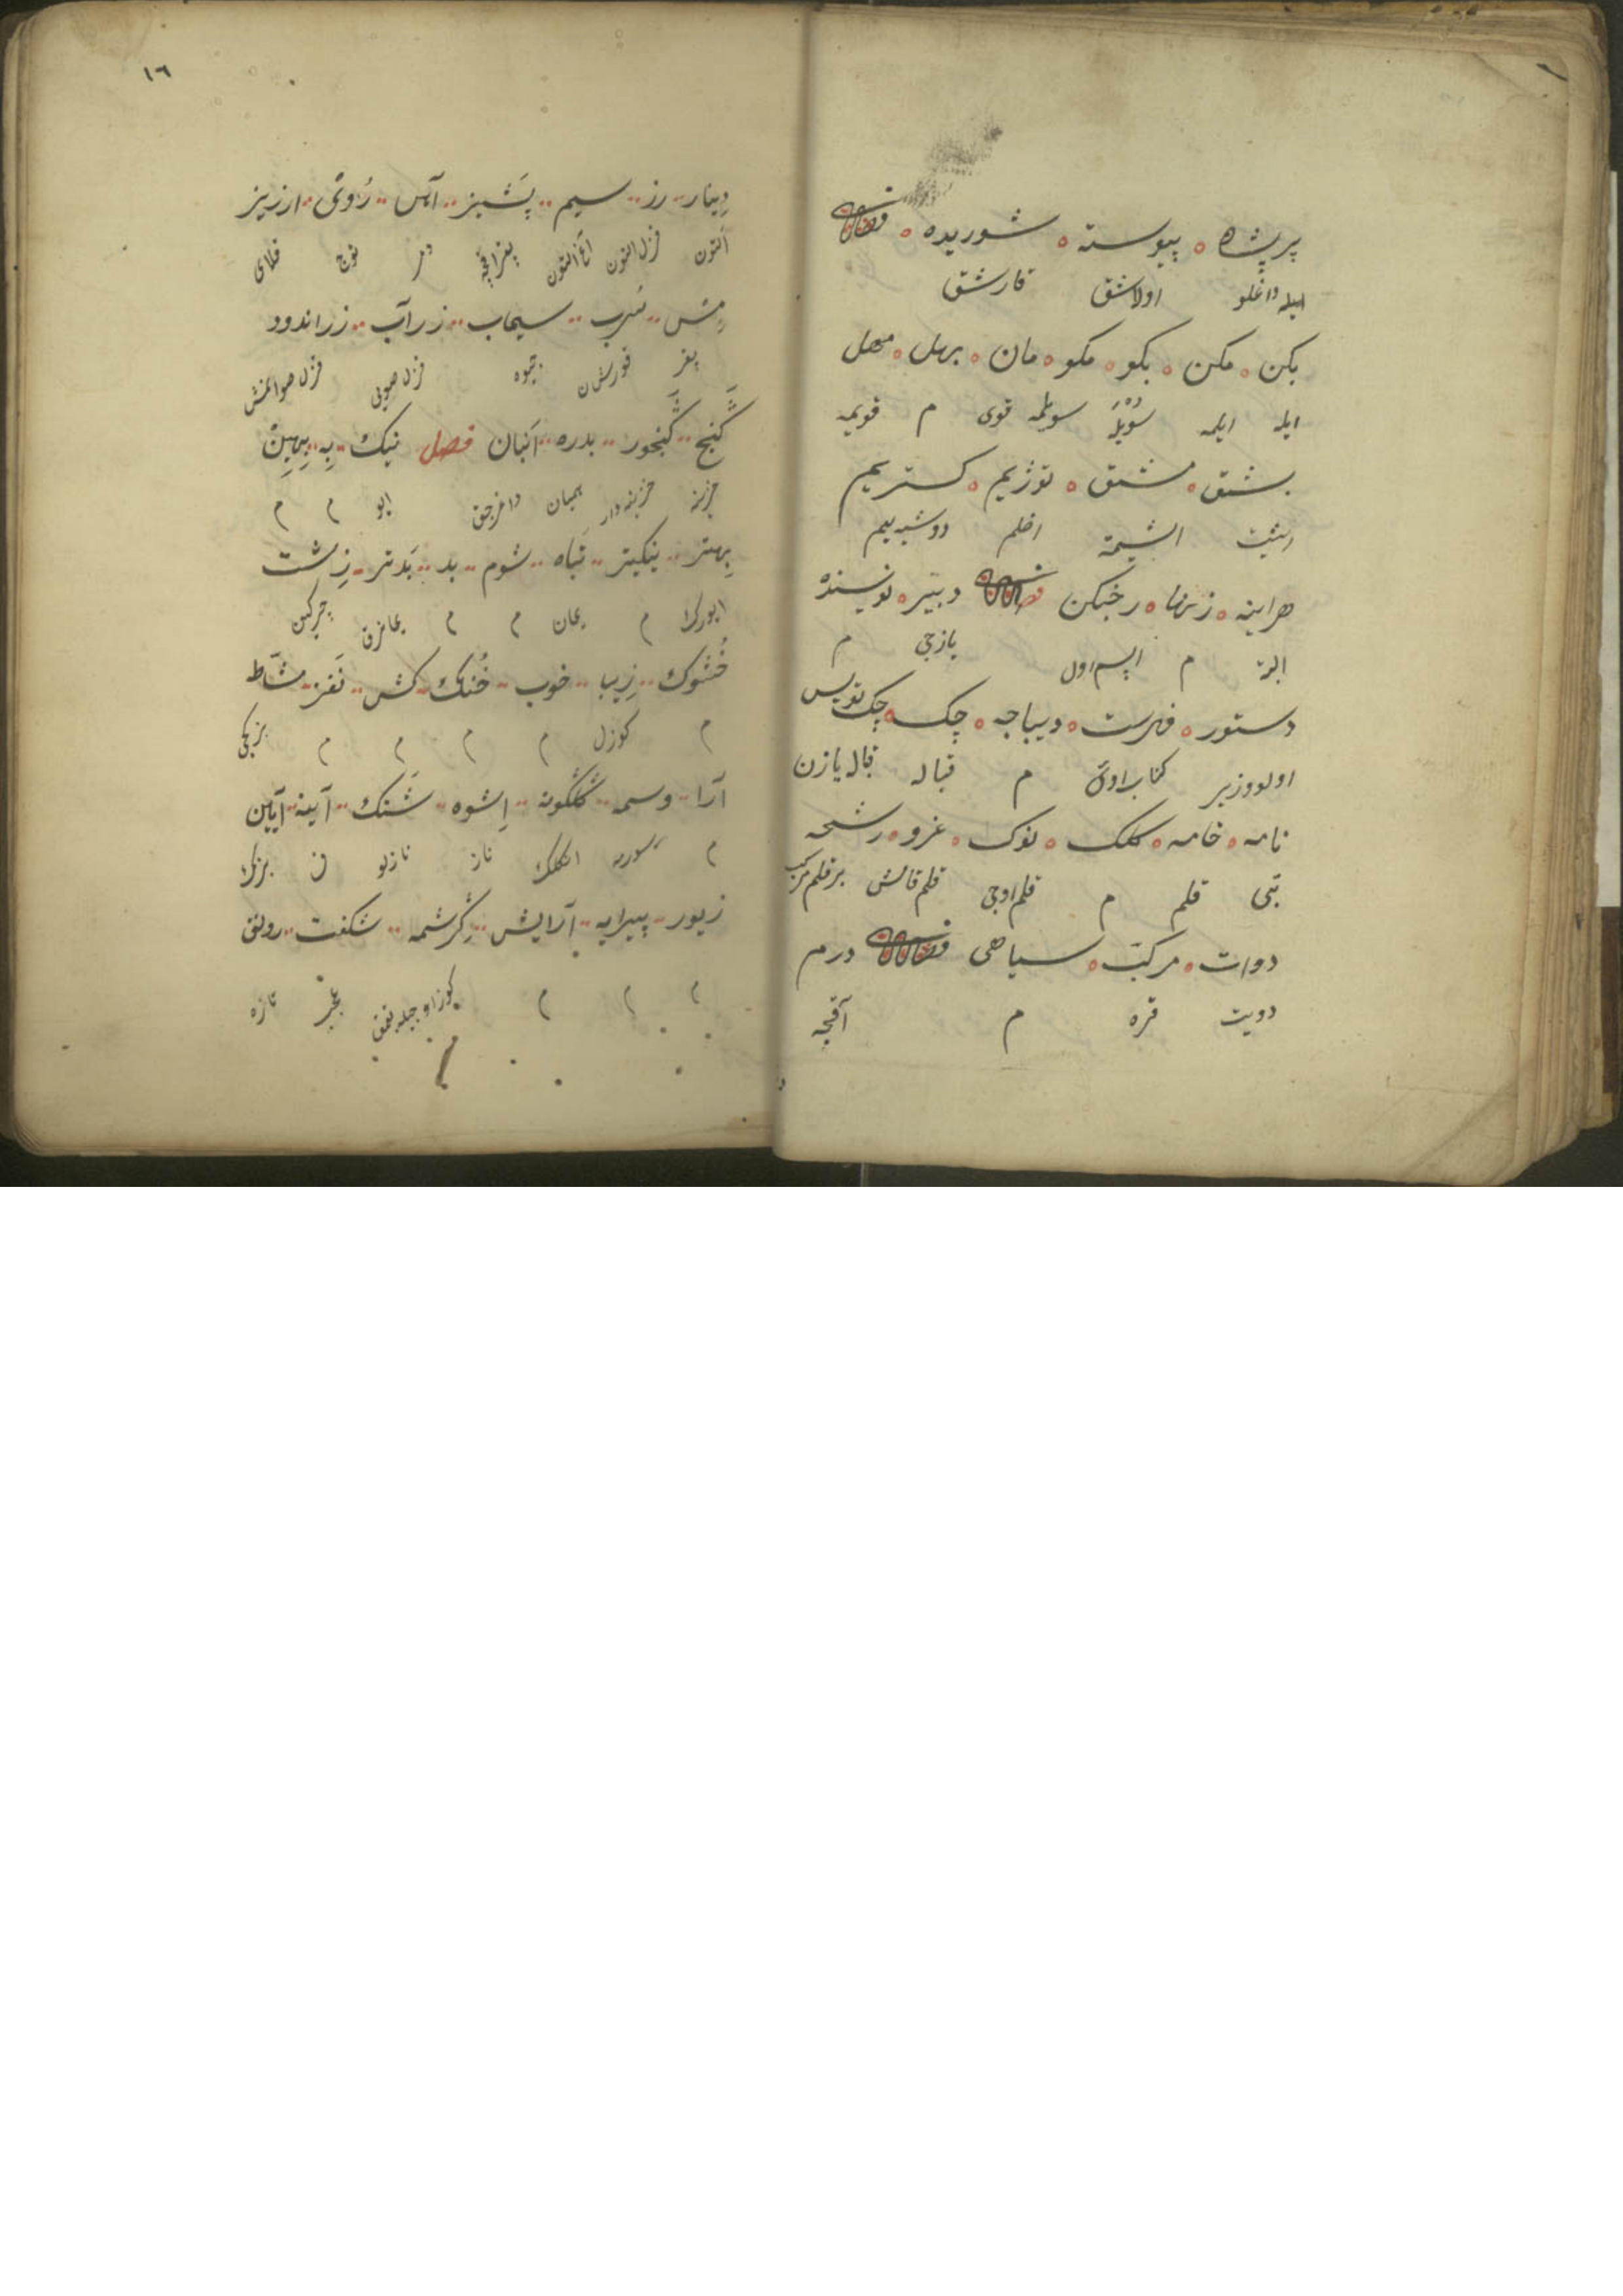 پیوسته شوریده فصل
طاغلو اولاشق قارشق
بکن مکن بکو مکو مان بهل مهل
ایله ایلمه سویله سویلمه قوی م قویمه
توزیم کستریم
دوشیه‌لیم
هراینه زنهار فصل دبیر نویسنده
البته م یازجی م
دستور فهرست دیباجه چک چک نویس
اولو وزیر کتاب اولی م قباله قباله یازن
نامه خامه کلک نوک غرو رشحه
بتی قلم م قلم اوجی قلم قامش بر قلم مرکب
دوات مرکب سیاهی فصل درم
دویت قره م آقجه
١٦
دینار زر سیم پشیز آهن روی ارزیز
التون قزل التون آغ التون بقر اقچه دمر توج قلای
مس سرب سیماب زرآب زراندود
بقر قورشون جیوه قزل صویی قزل صوالنمش
گنج گنجور بدره انبان فصل نیک به بهین
خزینه خزینه دار همیان داغرجق ایو م م
بهتر نیکیتر تباه شوم بد بدتر زشت
ایورک م یمان م م یمانرق چرکین
خشوک زیبا خوب خنک کش نغز مشاط
م کوزل م م م م بزکجی
آرا وسمه گلگونه اشوه شنک آینه آیین
م انکلک ناز نازلو بزک
زیور پیرایه آرایش کرشمه شکفت رونق
م م م کوز اوجیله بقمق عجب تازه